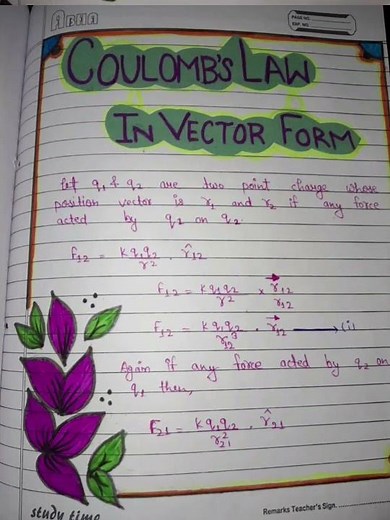 PAGE NO.
COULOMB'S LAW
IN VECTOR FORM
let q₁ & q₂ are two point charge whose
position vector is r₁ and r₂ if any force
acted by q₂ on q₂.
F₁₂ = kq₁q₂/r² . r̂₁₂
F₁₂ = kq₁q₂/r² × r⃗₁₂/r₁₂
F₁₂ = kq₁q₂/r₁₂³ . r⃗₁₂ → (i)
Again if any force acted by q₂ on
q₁ then,
F₂₁ = kq₁q₂/r₂₁² . r̂₂₁
study time
Remarks Teacher's Sign.